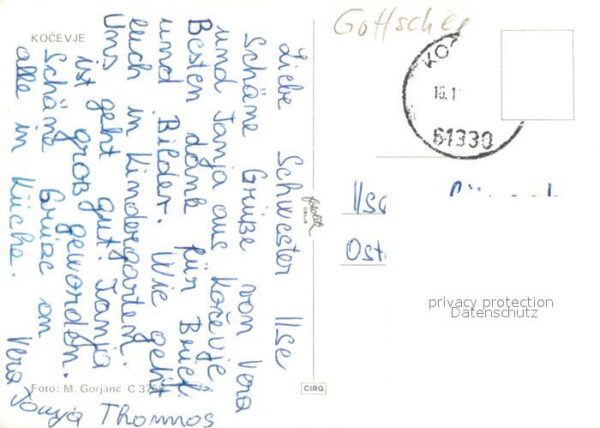 KOČEVJE
Liebe Schwester Ilse
Schöne Grüße von Vera
und Tanja aus Kočevje.
Besten dank für Brief
und Bilder. Wie geht
euch in Kindergarten.
Uns geht gut. Tanja
ist groß geworden.
Schöne Grüße an
alle in Küche. Vera
Tanja Thommos
Foto: M. Gorjanc C 375
CIRG
Gottschee
KOČ
16.1
61330
Ilse
Ost
privacy protection
Datenschutz